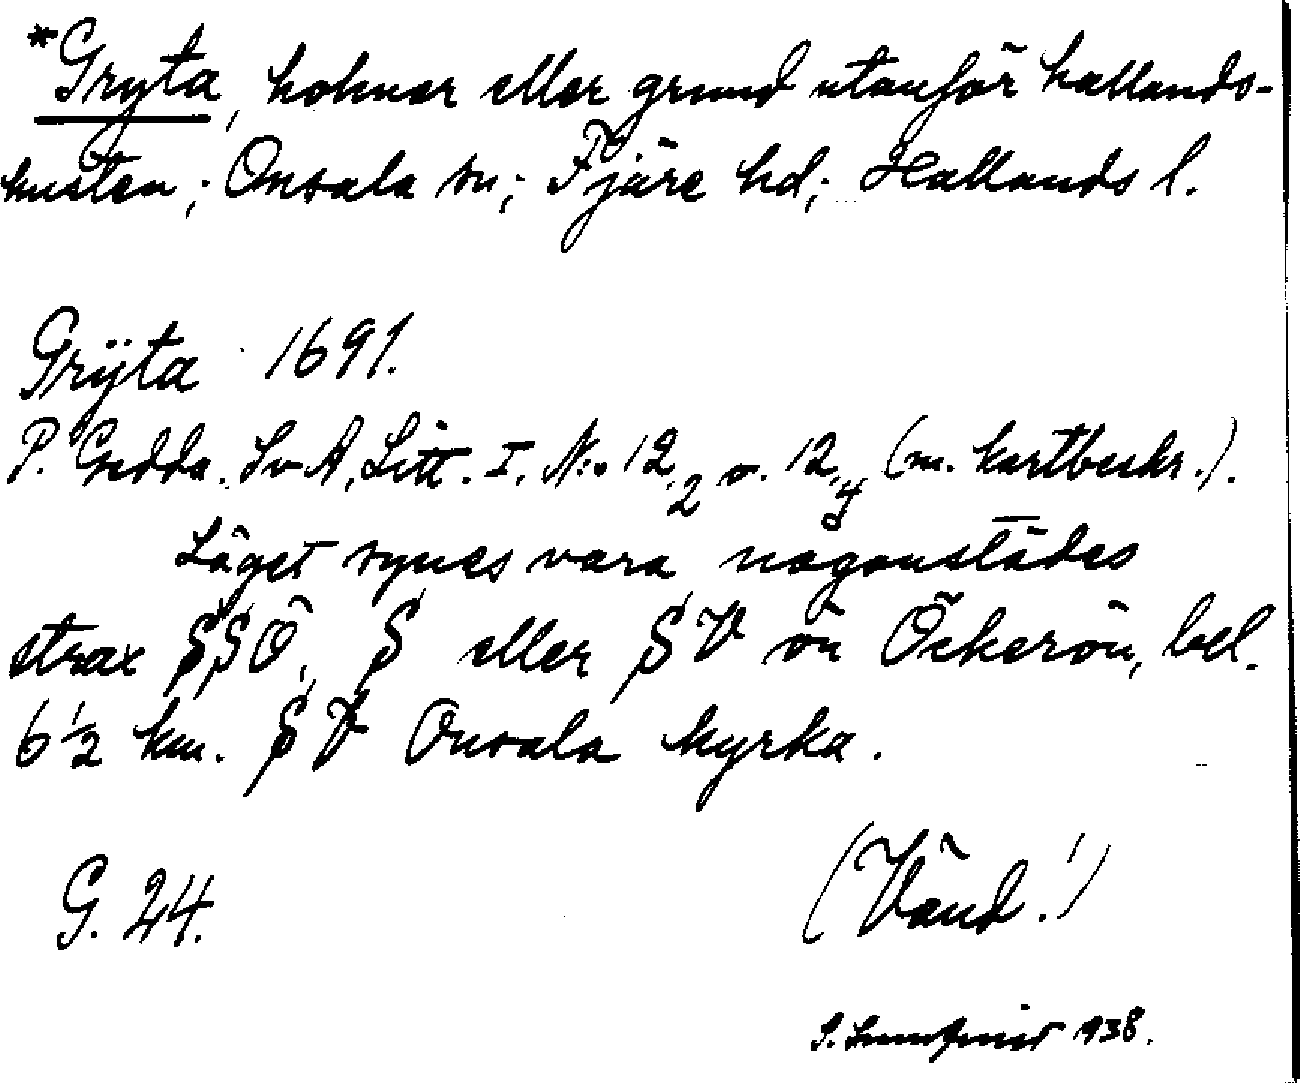 *Gryta, holmar eller grund utanför hallands-
kusten; Onsala sn; Fjäre hd; Hallands l.
Grÿta 1691.
P. Gedda. Sv A, Litt. I. N:o 12,2 o. 12,4 (m. kartbeskr.).
Läget synes vara någonstädes
strax SSÖ, S eller SV om Öckerön, bel.
6 1/2 km. SV Onsala kyrka.
G. 24.
(Vänd!)
S. 1938.